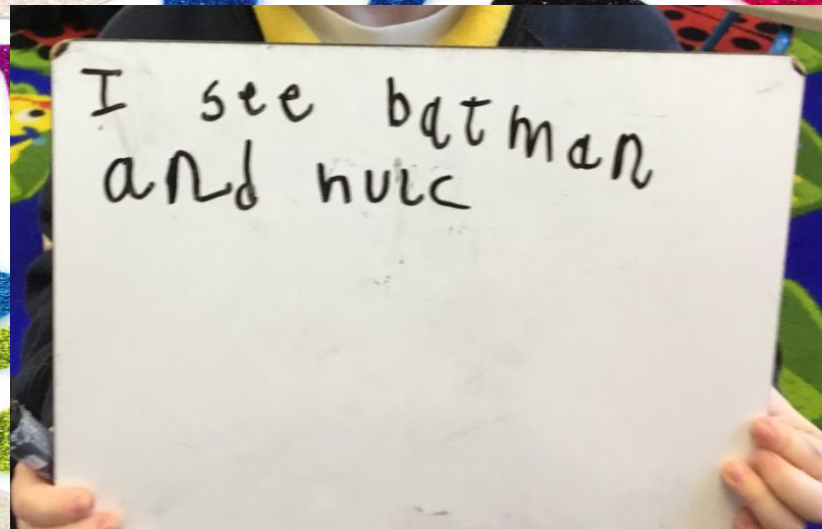 I see batman
and hulc